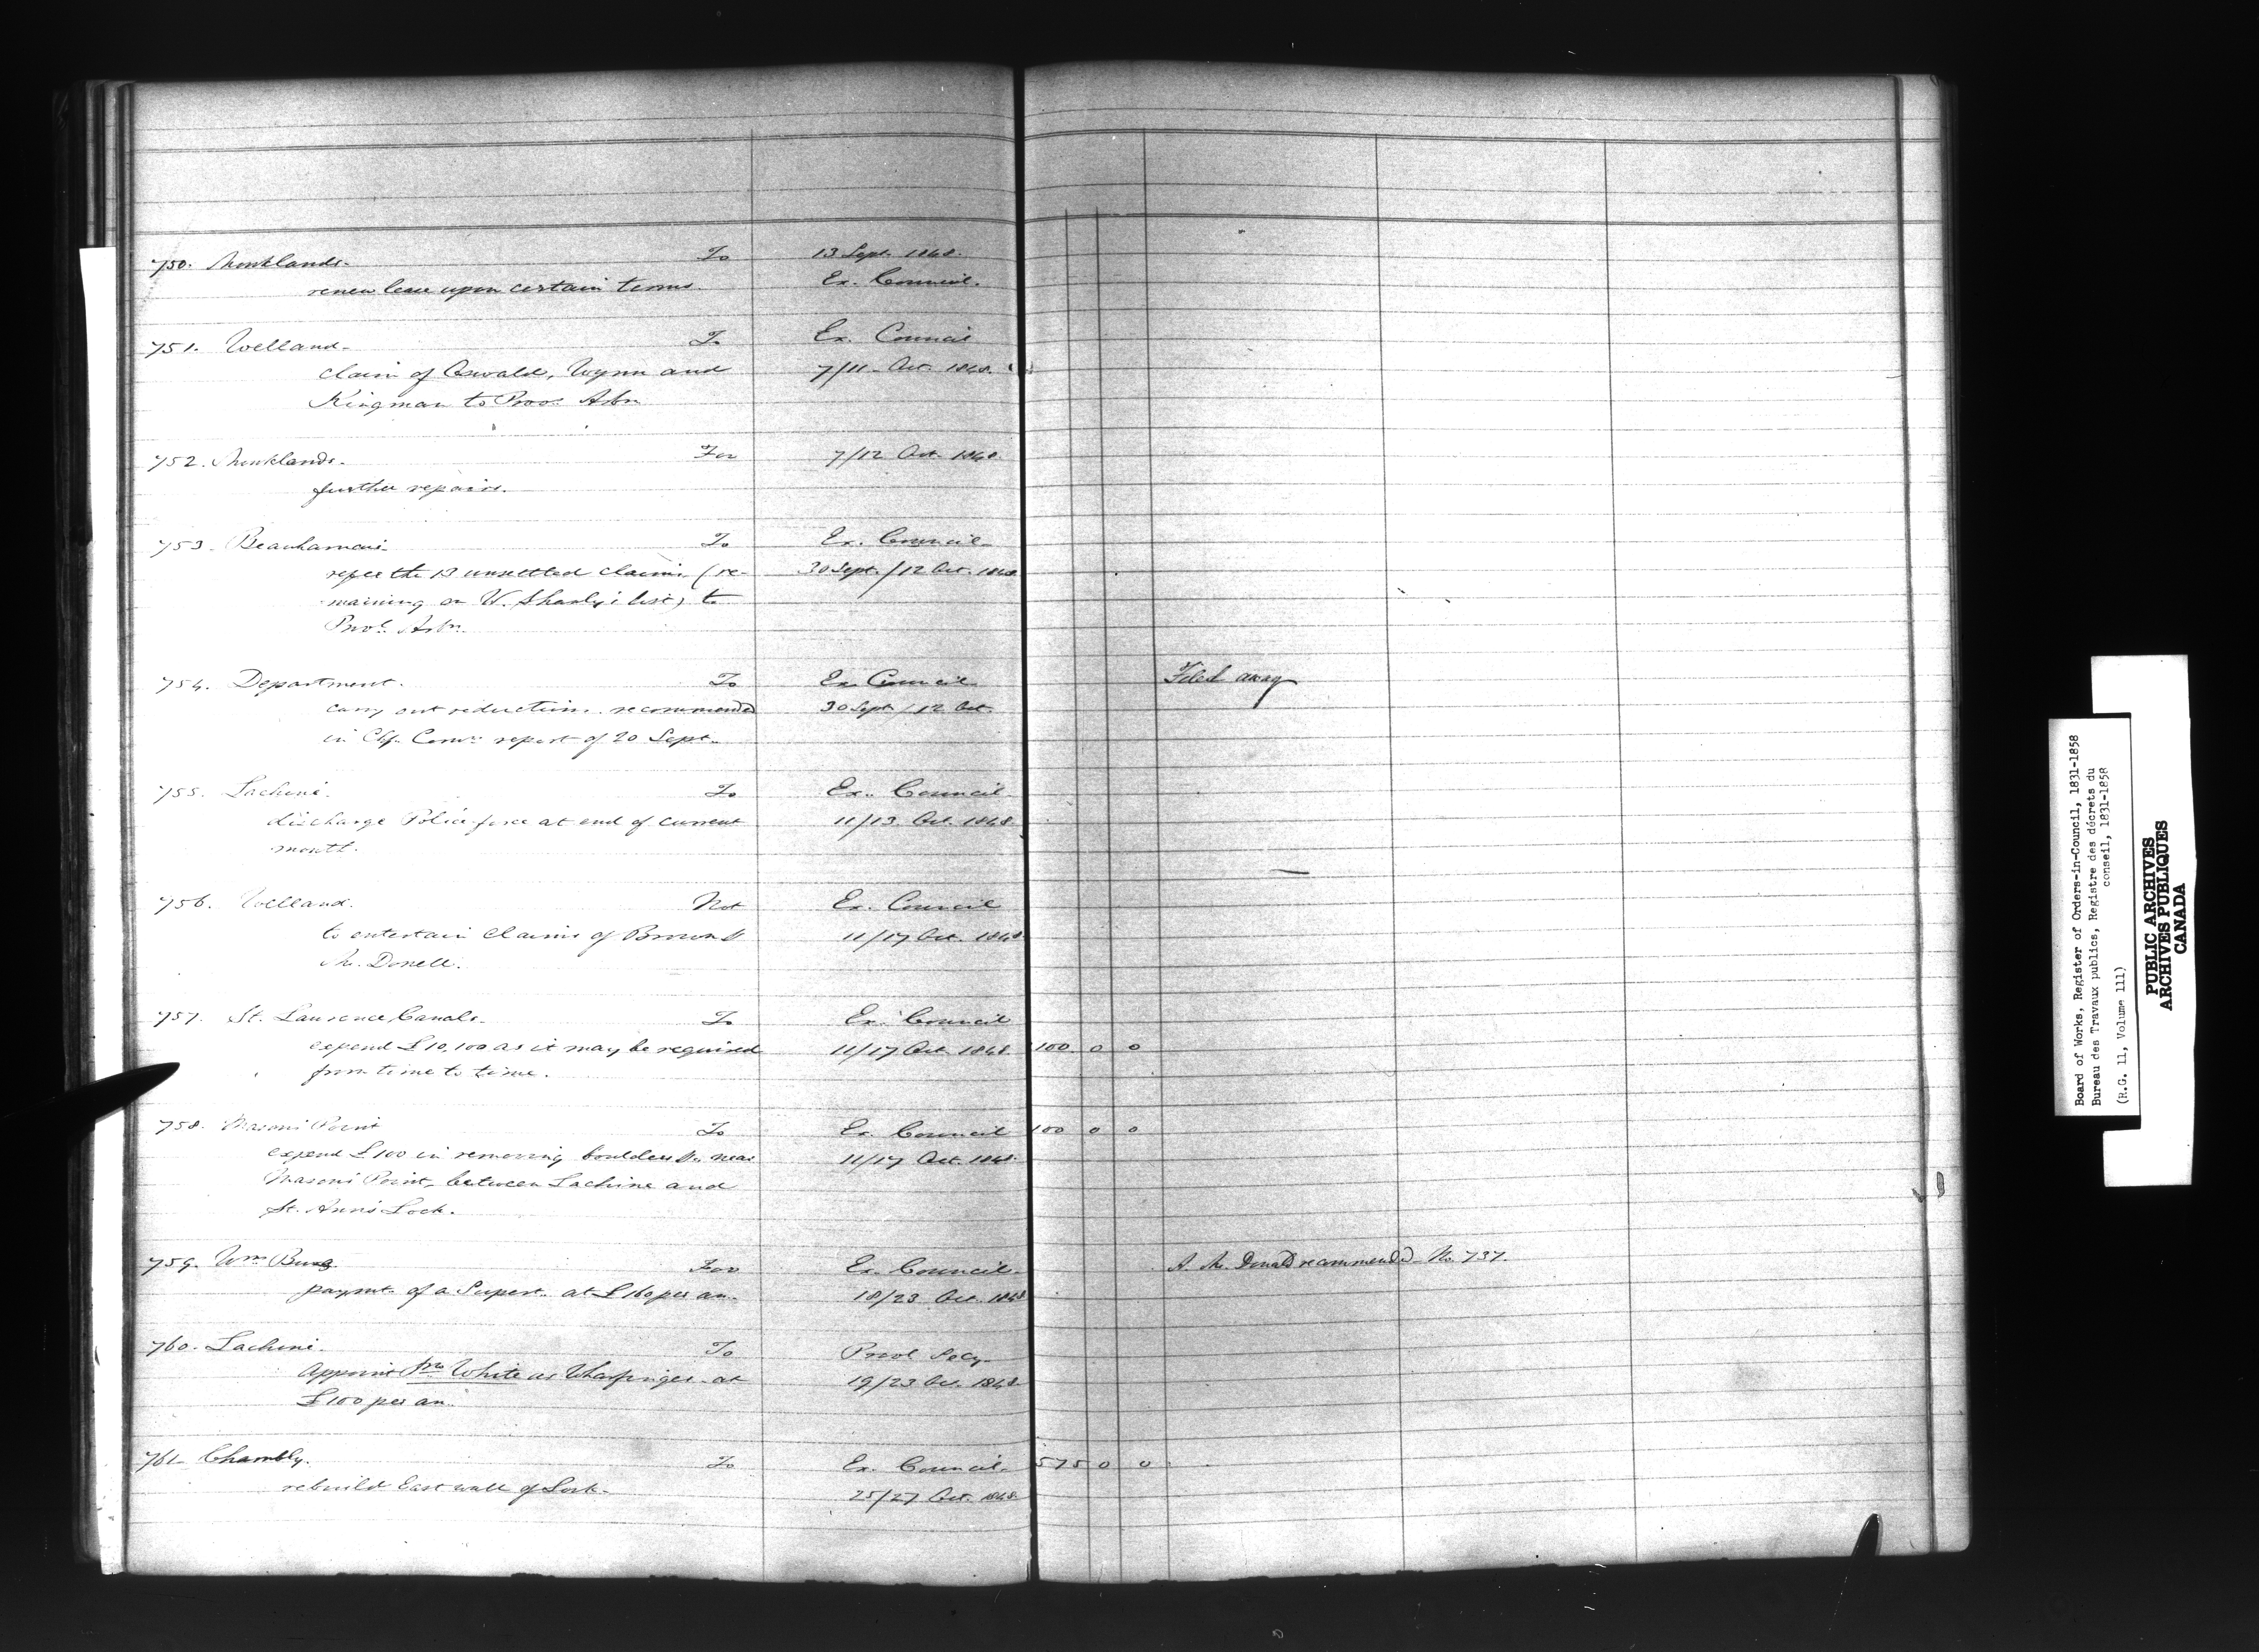 750. Monklands. To 13 Sept. 1848.
renew lease upon certain terms. Ex. Council.
751. Welland. To Ex. Council
claim of Oswald, Wynn and 7/11 Oct. 1848.
Kingman to Prov. Arbn
752. Monklands. For 7/12 Oct. 1848.
further repairs.
753. Beauharnois. To Ex. Council
refer the 13 unsettled claims (re- 30 Sept./12 Oct. 1848
maining on W. Shanly's list) to
Provl. Arbn.
754. Department. To Ex. Council Filed away
carry out reductions recommended 30 Sept./12 Oct.
in Chf. Comrs report of 20 Sept.
755. Lachine. To Ex. Council.
discharge Police force at end of current 11/13 Oct. 1848.
month.
756. Welland. Not Ex. Council
to entertain claims of Brown & 11/17 Oct. 1848
Mc. Donell.
757. St. Lawrence Canals. To Ex. Council
expend £10,100 as it may be required 11/17 Oct. 1848. 100. 0 0
from time to time.
758. Masons Point To Ex. Council 100 0 0
expend £100 in removing boulders &c near 11/17 Oct. 1848.
Masons Point, between Lachine and
St. Anns Lock.
759. Wm For Ex. Council. A. Mc. Donald recommended No. 737.
paymt. of a Supert. at £160 per an. 18/23 Oct. 1848
760. Lachine. To Provl Secy.
Appoint White as Wharfinger at 19/23 Oc. 1848
£100 per an.
761. Chambly. To Ex. Council. 575 0 0
rebuild East wall of Lock. 25/27 Oct. 1848.
Board of Works, Register of Orders-in-Council, 1831-1858
Bureau des Travaux publics, Registre des décrets du
conseil, 1831-1858
(R.G. 11, Volume 111)
PUBLIC ARCHIVES
ARCHIVES PUBLIQUES
CANADA